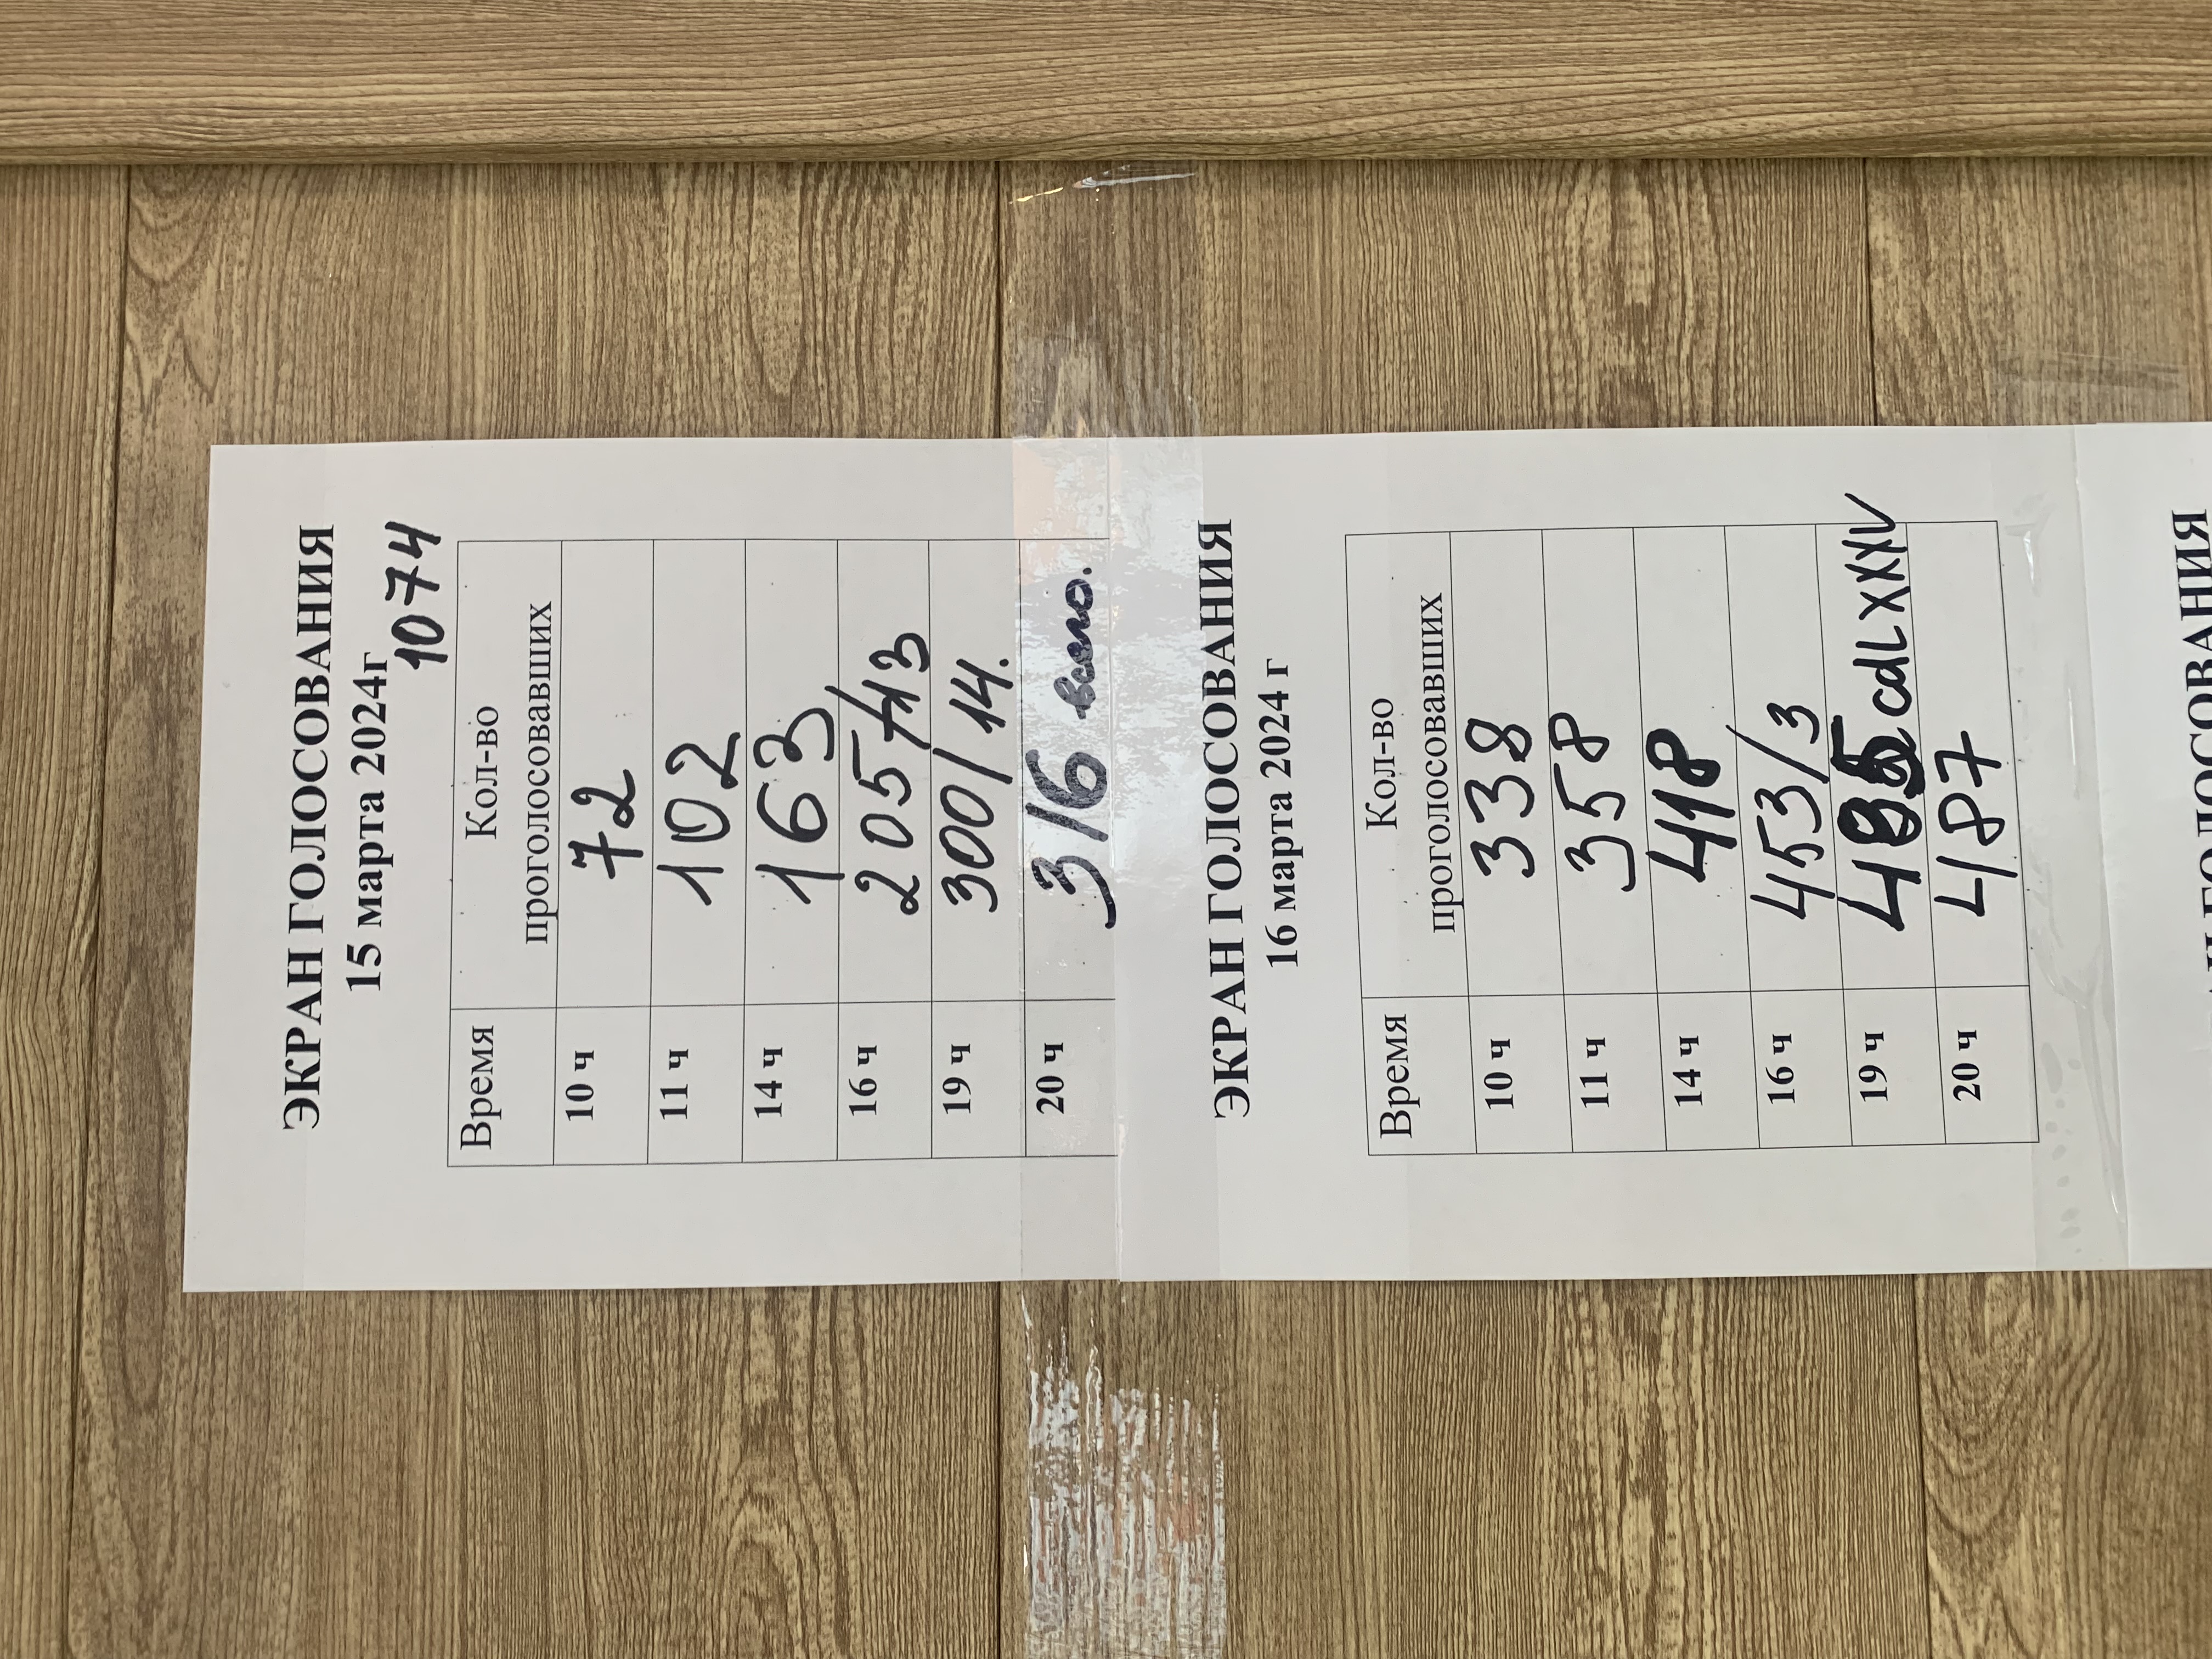 ЭКРАН ГОЛОСОВАНИЯ
15 марта 2024г
1074
Время Кол-во
проголосовавших
10 ч 72
11 ч 102
14 ч 163
16 ч 205/13
19 ч 300/14.
20 ч 316 всего.
ЭКРАН ГОЛОСОВАНИЯ
16 марта 2024 г
Время Кол-во
проголосовавших
10 ч 338
11 ч 358
14 ч 418
16 ч 453/3
19 ч 485 cdLXXXV
20 ч 487
ГОЛОСОВАНИЯ